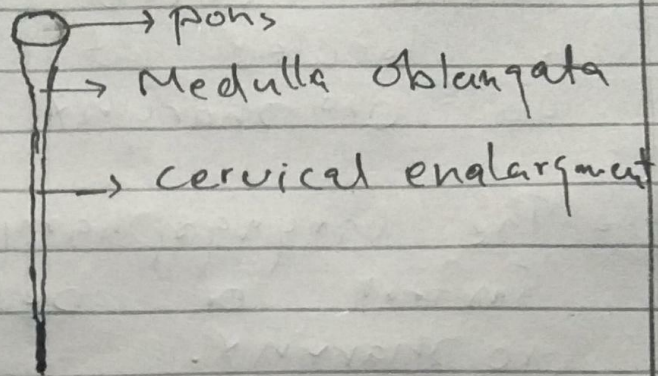 pons
Medulla Oblangata
cervical enalargment